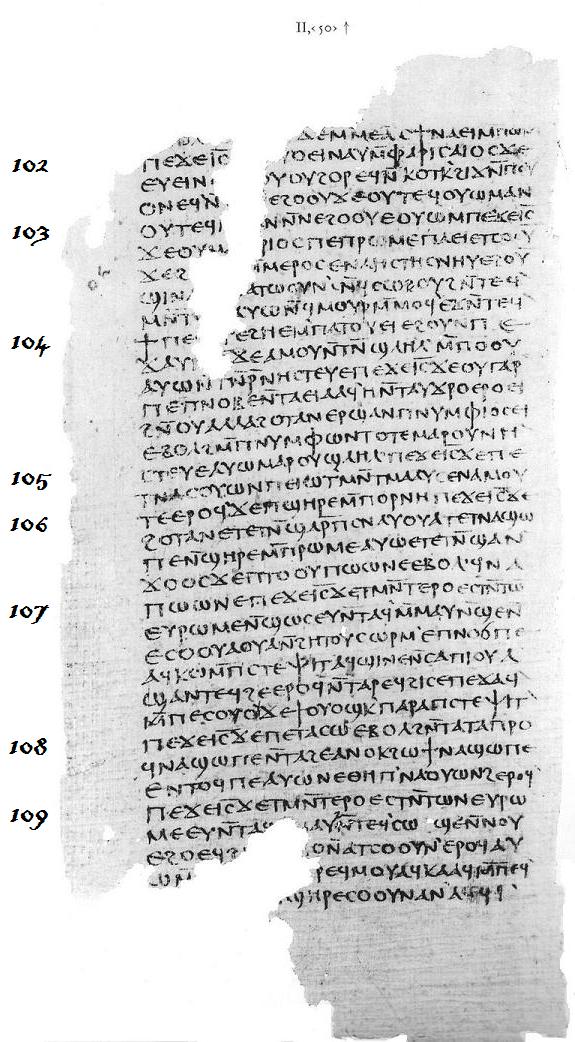 ⲇⲉⲙⲙⲉⲁⲥϯⲛⲁⲉⲓⲙⲡⲱⲛϩ
ⲡⲉϫⲉⲓ̅ⲥ̅ ⲟⲉⲓⲛⲁⲩⲙ̅ⲫⲁⲣⲓⲥⲁⲓⲟⲥϫⲉ
ⲉⲩⲉⲓⲛ ⲟⲩⲟⲩϩⲟⲣⲉϥⲛ̅ⲕⲟⲧⲕϩⲓϫⲛ̅ⲡⲟⲩ
ⲟⲛⲉϥⲛ̅ ⲉϩⲟⲟⲩϫⲉⲟⲩⲧⲉϥⲟⲩⲱⲙⲁⲛ
ⲟⲩⲧⲉϥ ⲛⲛ̅ⲛⲉϩⲟⲟⲩⲉⲟⲩⲱⲙⲡⲉϫⲉⲓ̅ⲥ̅
ϫⲉⲟⲩⲙ ⲣⲓⲟⲥⲡⲉⲡⲣⲱⲙⲉⲡⲁⲉⲓⲉⲧⲥⲟⲟⲩ
ϫⲉϩ ⲙⲉⲣⲟⲥⲉⲛⲗⲏⲥⲧⲏⲥⲛⲏⲩⲉϩⲟⲩ
ϣⲓⲛⲁ ⲁⲧⲱⲟⲩⲛ ⲛϥⲥⲱⲟⲩϩⲛ̅ⲧⲉϥ
ⲙⲛ̅ⲧ ⲁⲩⲱⲛϥⲙⲟⲩⲣⲙ̅ⲙⲟϥⲉϫⲛ̅ⲧⲉϥ
ϯⲡⲉ ⲧⲉϩⲏⲉⲙⲡⲁⲧⲟⲩⲉⲓⲉϩⲟⲩⲛⲡⲉ
ϫⲁⲩ ϫⲉⲁⲙⲟⲩⲛⲧⲛ̅ϣⲗⲏⲗⲙ̅ⲡⲟⲟⲩ
ⲁⲩⲱⲛ̅ⲧⲛ̅ⲣ̅ⲛⲏⲥⲧⲉⲩⲉⲡⲉϫⲉⲓ̅ⲥ̅ϫⲉⲟⲩⲅⲁⲣ
ⲡⲉⲡⲛⲟⲃⲉⲛⲧⲁⲉⲓⲁⲁϥⲏⲛ̅ⲧⲁⲩϫⲣⲟⲉⲣⲟⲉⲓ
ϩⲛ̅ⲟⲩⲁⲗⲗⲁϩⲟⲧⲁⲛⲉⲣϣⲁⲛⲡⲛⲩⲙⲫⲓⲟⲥⲉⲓ
ⲉⲃⲟⲗϩⲙ̅ⲡⲛⲩⲙⲫⲱⲛⲧⲟⲧⲉⲙⲁⲣⲟⲩⲛⲏ
ⲥⲧⲉⲩⲉⲁⲩⲱⲙⲁⲣⲟⲩϣⲗⲏⲗⲡⲉϫⲉⲓ̅ⲥ̅ϫⲉⲡⲉ
ⲧⲛⲁⲥⲟⲩⲱⲛⲡⲉⲓⲱⲧⲙⲛ̅ⲧⲙⲁⲁⲩⲥⲉⲛⲁⲙⲟⲩ
ⲧⲉⲉⲣⲟϥϫⲉⲡϣⲏⲣⲉⲙ̅ⲡⲟⲣⲛⲏⲡⲉϫⲉⲓ̅ⲥ̅ϫⲉ
ϩⲟⲧⲁⲛⲉⲧⲉⲧⲛ̅ϣⲁⲣ̅ⲡⲥⲛⲁⲩⲟⲩⲁⲧⲉⲧⲛⲁϣⲱ
ⲡⲉⲛ̅ϣⲏⲣⲉⲙ̅ⲡⲣⲱⲙⲉⲁⲩⲱⲉⲧⲉⲧⲛ̅ϣⲁⲛ
ϫⲟⲟⲥϫⲉⲡⲧⲟⲟⲩⲡⲱⲱⲛⲉⲉⲃⲟⲗϥⲛⲁ
ⲡⲱⲱⲛⲉⲡⲉϫⲉⲓ̅ⲥ̅ϫⲉⲧⲙⲛ̅ⲧⲉⲣⲟⲉⲥⲧⲛ̅ⲧⲱ
ⲉⲩⲣⲱⲙⲉⲛ̅ϣⲱⲥⲉⲩⲛ̅ⲧⲁϥⲙ̅ⲙⲁⲩⲛ̅ϣⲉⲛ
ⲉⲥⲟⲟⲩⲁⲟⲩⲁⲛ̅ϩⲏⲧⲟⲩⲥⲱⲣⲙⲉⲡⲛⲟϭⲡⲉ
ⲁϥⲕⲱⲙ̅ⲡⲥⲧⲉⲯⲓⲧⲁϥϣⲓⲛⲉⲛ̅ⲥⲁⲡⲓⲟⲩⲁ
ϣⲁⲛⲧⲉϥϩⲉⲉⲣⲟϥⲛ̅ⲧⲁⲣⲉϥϩⲓⲥⲉⲡⲉϫⲁϥ
ⲙ̅ⲡⲉⲥⲟⲩⲟϫⲉϯⲟⲩⲟϣⲕⲡⲁⲣⲁⲡⲥⲧⲉⲯⲓⲧ
ⲡⲉϫⲉⲓ̅ⲥ̅ϫⲉⲡⲉⲧⲁⲥⲱⲉⲃⲟⲗϩⲛ̅ⲧⲁⲧⲁⲡⲣⲟ
ϥⲛⲁϣⲱⲡⲉⲛ̅ⲧⲁϩⲉⲁⲛⲟⲕϩⲱϯⲛⲁϣⲱⲡⲉ
ⲉⲛⲧⲟϥⲡⲉⲁⲩⲱⲛⲉⲑⲏⲡⲛⲁⲟⲩⲱⲛϩⲉⲣⲟϥ
ⲡⲉϫⲉⲓ̅ⲥ̅ϫⲉⲧⲙⲛ̅ⲧⲉⲣⲟⲉⲥⲧⲛ̅ⲧⲱⲛⲉⲩⲣⲱ
ⲙⲉⲉⲩⲛ̅ⲧⲁϥ ⲙⲁⲩϩⲛ̅ⲧⲉϥⲥⲱϣⲉⲛ̅ⲛⲟⲩ
ⲉϩⲟⲉϥϩ ⲟⲛⲁⲧⲥⲟⲟⲩⲛⲉⲣⲟϥⲁⲩ
ⲱⲙ ⲣⲉϥⲙⲟⲩⲁϥⲕⲁⲁϥⲙ̅ⲡⲉϥ
ϣⲏⲣⲉ ⲥⲟⲟⲩⲛⲁⲛⲁϥϥⲓ
102
103
104
105
106
107
108
109
II,‹50› ↑